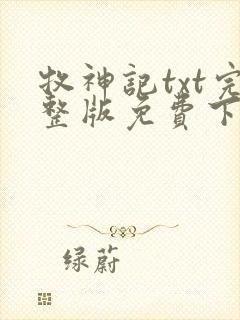 牧神記txt完
整版免費下
绿蔚